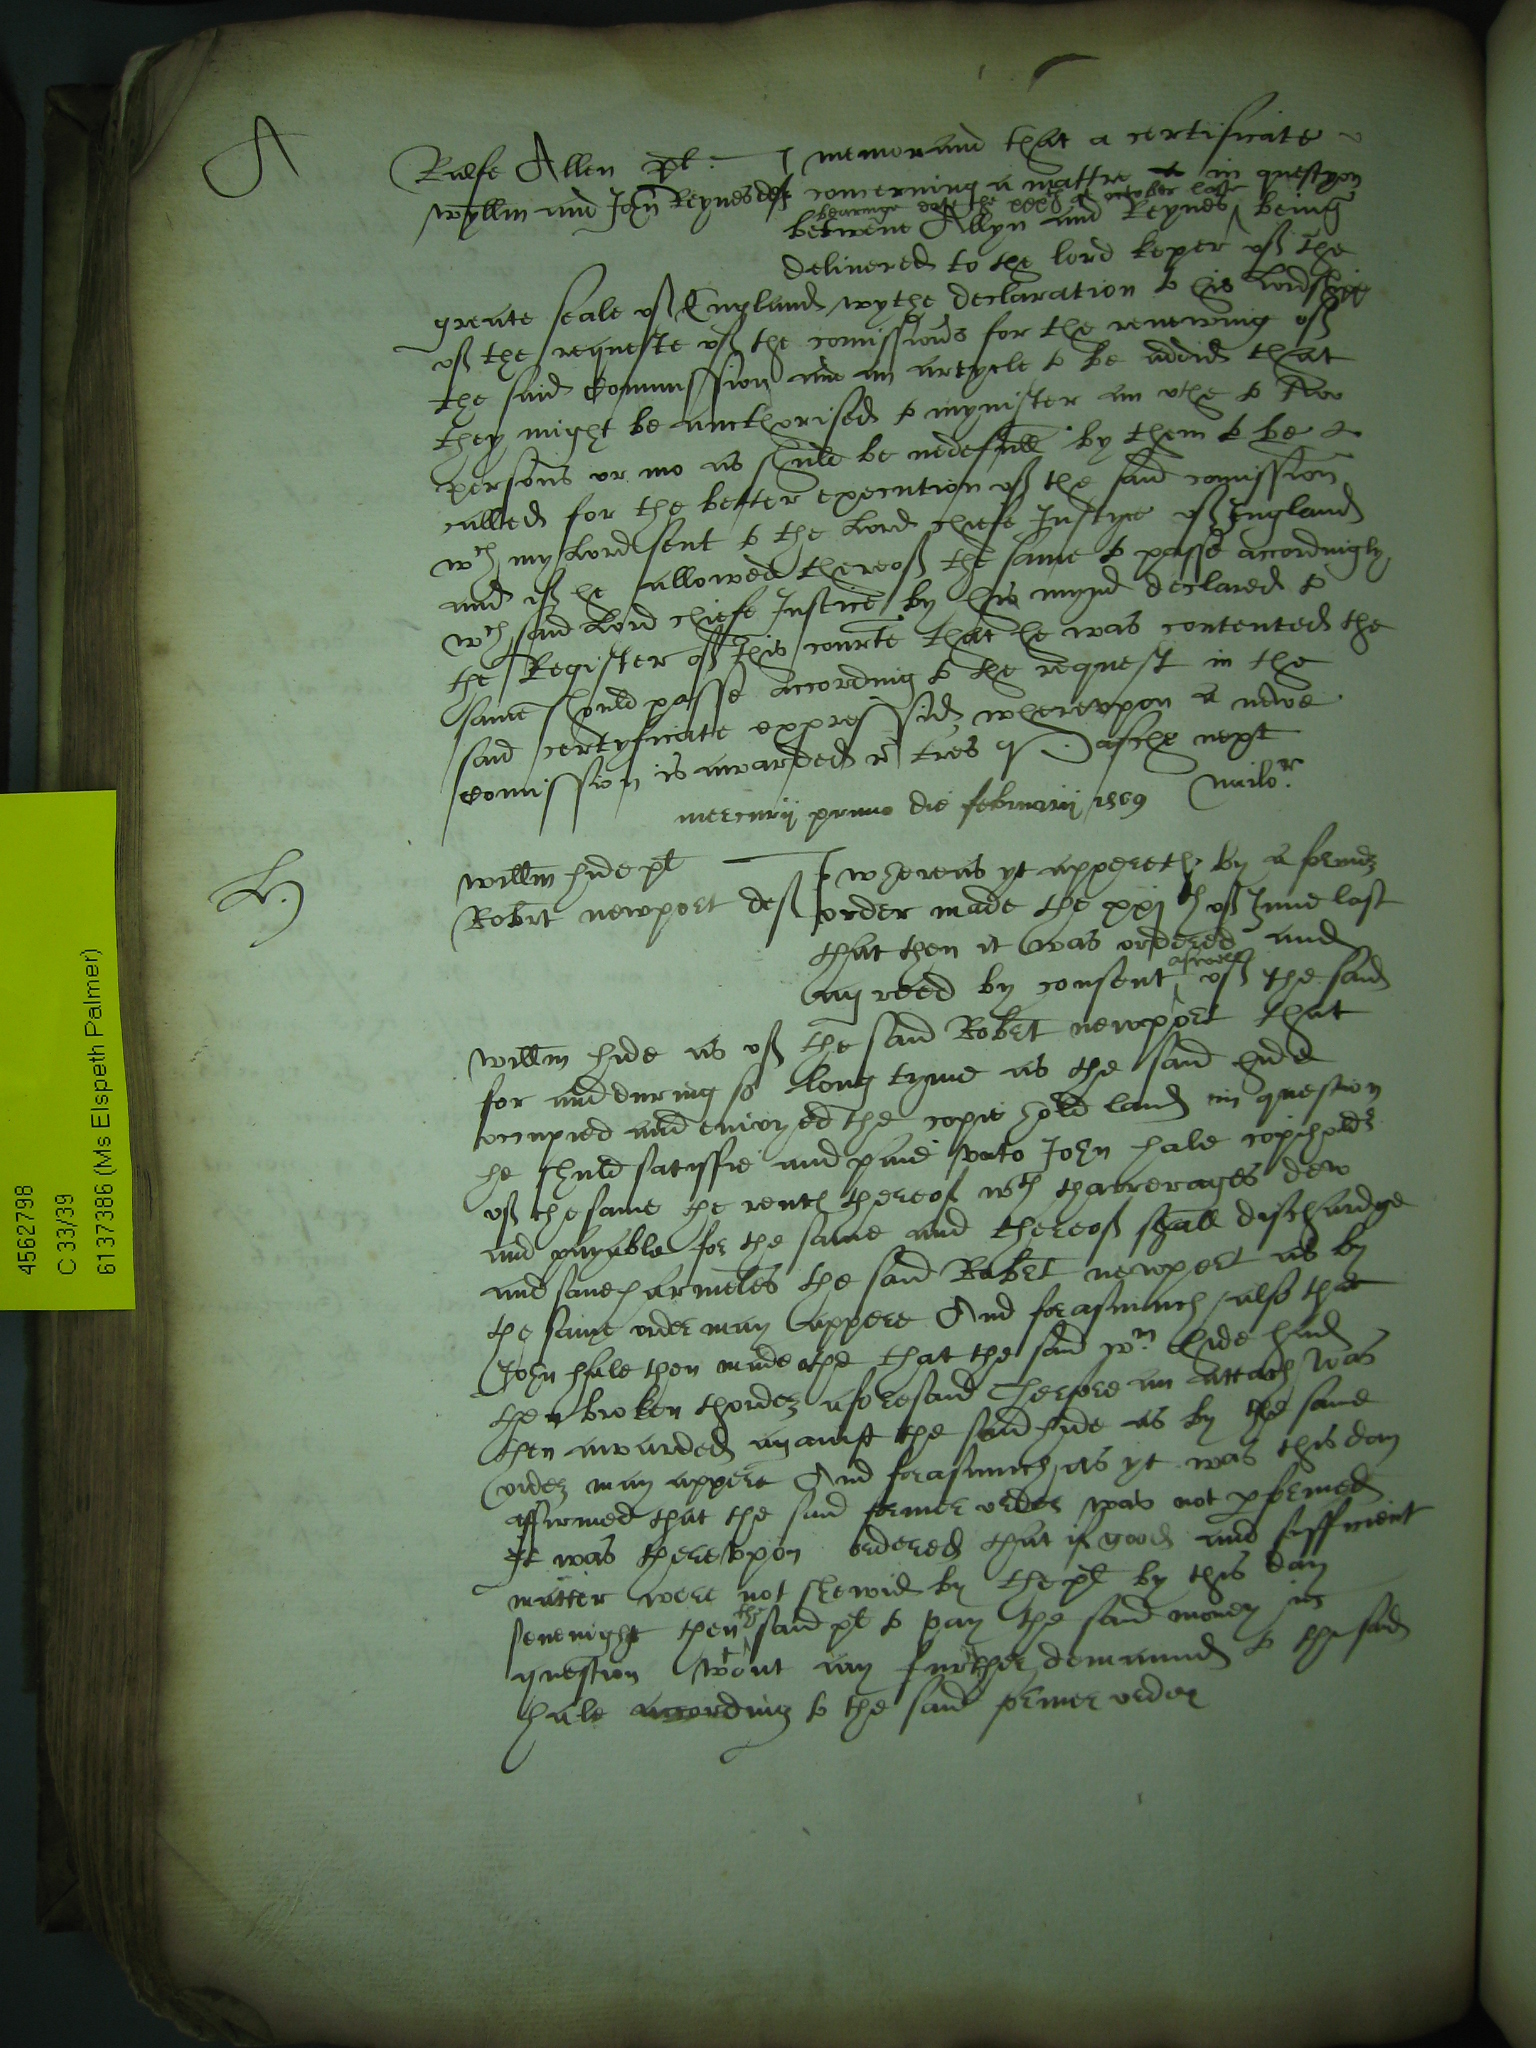 A
Raffe Allen pl: memorand that a certificate
Wyllm and John Reynes deff concerning a mattre in questyon
bearinge date the xxxth of october last
betwene Allyn and Reynes being
delivered to the lord keper off the
greate seale off England wythe declaration to his Lordshipp
off the requeste off the comissioners for the renewing off
the said Commission and an artycle to be addid that
they might be aucthorised to mynister an othe to two
persons or mo as shuld be nedefull by them to be
called for the better execution off the said comission
wch my Lord sent to the Lord chiefe Justyce off England
and iff he allowed thereoff the same to passe accordingly
wch said Lord chiefe Justice by his mynd declared to
the Register off this courte that he was contented the
same should passe according to the request in the
said certyficate expressid wherevpon a newe
Comission is awarded r tres q Pasche next
mercurij primo die februarij 1569
L.
Willm hide pl
Whereas yt appereth by a former
Robert newport deff order made the xxjth off June last
that then it was ordered and
agreed by consent aswell off the said
Willm hide as off the said Robert newport that
for and during so long tyme as the said hide
occupied and enioyed the copie hold land in question
he shuld satisffie and paie vnto John hale copiholder
off the same the rents thereof wth tharrerages dew
and payable for the same and thereoff shall dischardge
and save harmeles the said Robert newport as by
the same order may appere And forasmuch also that
John hale then made othe that the said Wm hide had
then broken thorder aforesaid Therfore an attach was
then awarded against the said hide as by the same
order may appere And forasmuch as yt was this day
affirmed that the said former order was not pformed
It was therevpon ordered that if good and sufficient
matter were not shewid by the pl by this day
sevenight then the said pl to pay the said money in
question wtout any further demaund to the said
hale according to the said former order
4562798
C 33/39
6137386 (Ms Elspeth Palmer)